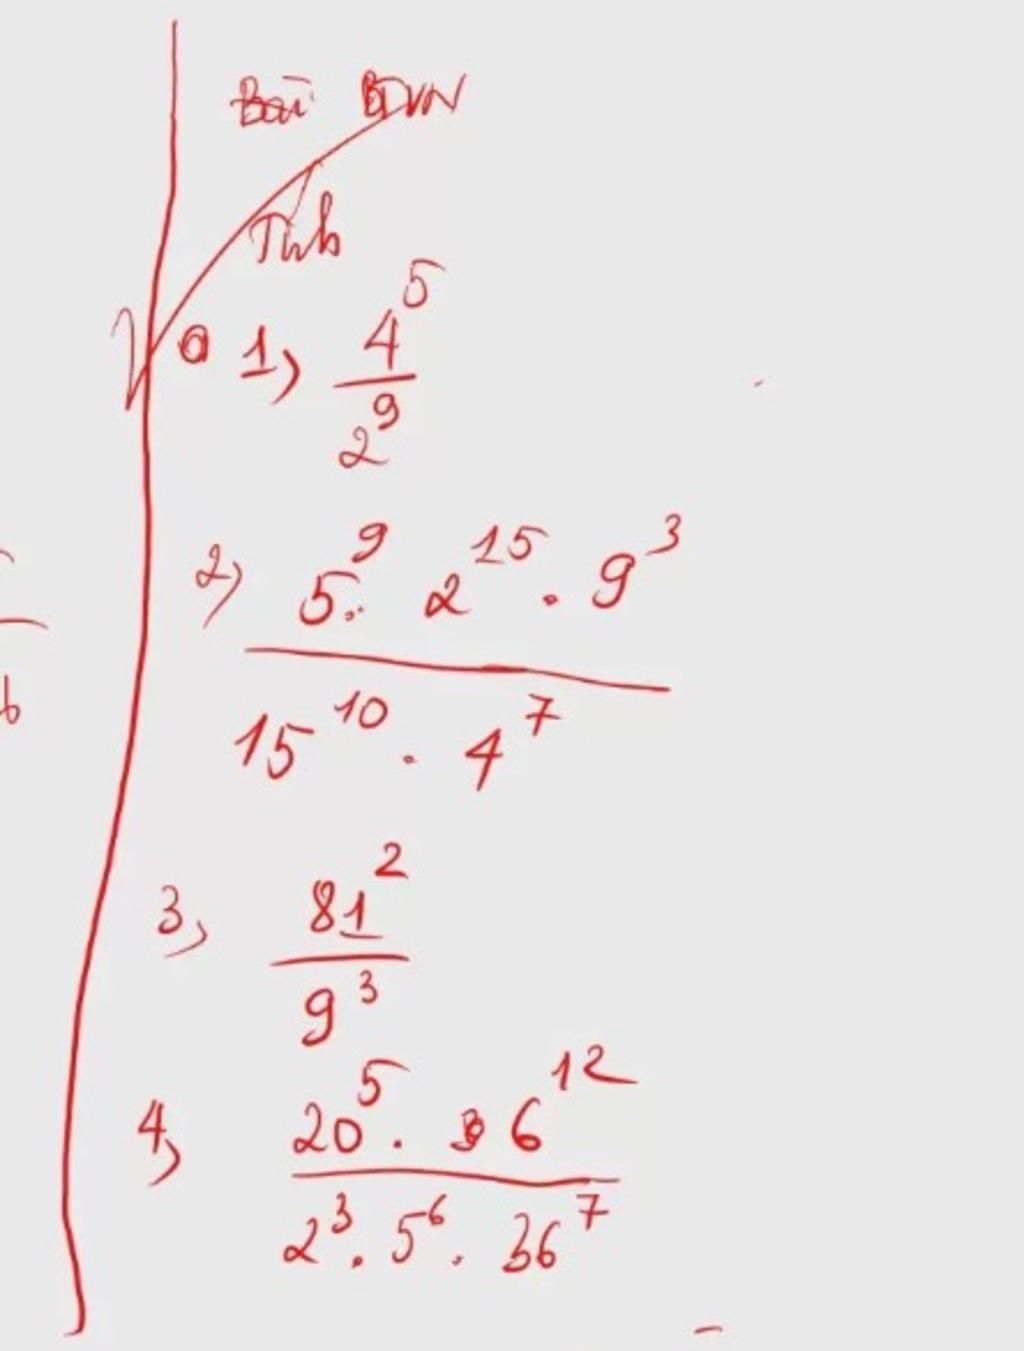 Bài BTVN
Tính
1) 4^5 / 2^9
2) 5^9 . 2^15 . 9^3 / 15^10 . 4^7
3) 81^2 / 9^3
4) 20^5 . 6^12 / 2^3 . 5^6 . 36^7